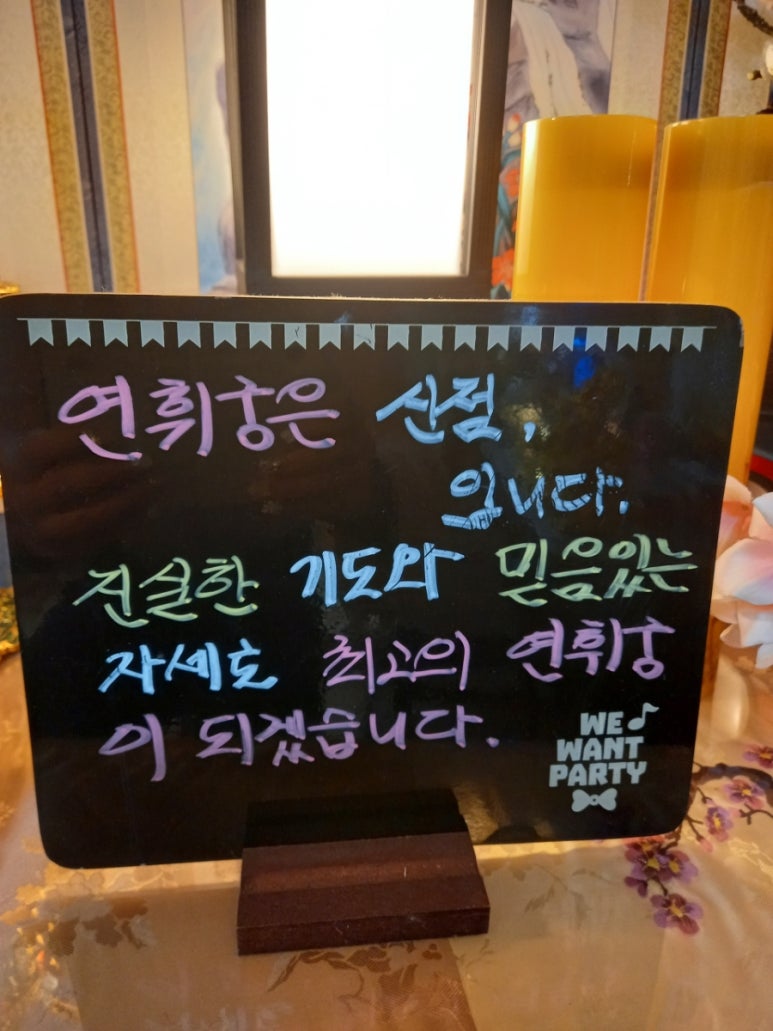 연휘궁은 신점,
입니다.
진실한 기도와 믿음있는
자세로 최고의 연휘궁
이 되겠습니다.
WE
WANT
PARTY